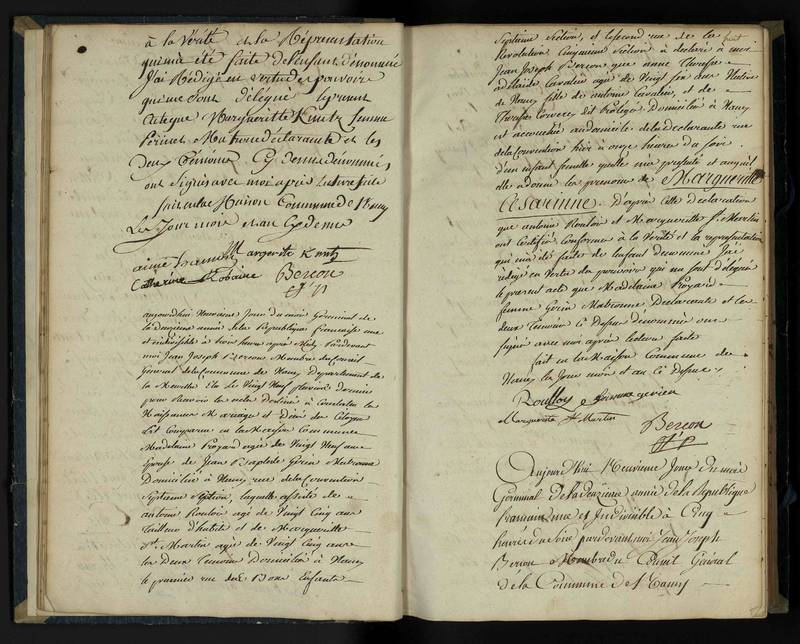 à la Vérité et la Représentation
qui m'a été faite de l'enfant dénommé
J'ai Rédigé en vertu des pouvoirs
qui me sont délégué le present
acte que Margueritte Kuntz femme
Matrone declarante et les
deux Témoins Cy dessus denommés
ont Signés avec moi après Lecture faite
fait en la Maison Commune de Nancy
Les Jour mois et an Cy dessus
Margerite Kuntz
Catherine Bercon
aujourdhui Neuvieme Jour du mois Germinal de
la deuxieme année de la Republique francaise une
et indivisible à trois heures après Midy Pardevant
moi Jean Joseph Bercon Membre du Conseil
General de la Commune de Nancy Departement de
la Meurthe Elu le Vingt Neuf pluviose dernier
pour Recevoir les actes destinés à constater les
Naissances Mariages et Décès des Citoyens
Est Comparue en la Maison Commune
Madelaine Royard agée de Vingt Neuf ans
Epouse de Jean Baptiste Gérin Matronne
Domiciliée à Nancy rue de la Convention
Septieme Section, laquelle assisté de
antoine Roulois agé de Vingt Cinq ans
tailleur d'habits et de Margueritte
St Martin agée de Vingt Cinq ans
les Deux temoins Domiciliés à Nancy
le premier rue des Bons Enfants
Septieme Section, et la seconde rue de la
Revolution Cinquieme Section à declaré à moi
Jean Joseph Bercon que anne Therese
adelaide Cavalin agée de Vingt six ans Native
de Nancy fille de antoine Cavalin, et de
Therese Domicilié à Nancy
est accouchée au domicile de la declarante rue
de la Convention hier à onze heures du soir
d'un enfant femelle quelle m'a présenté et auquel
elle a donné les prenoms de Margueritte
Césarinne. D'après cette declaration
que antoine Roulois et Margueritte St Martin
ont Certifiée Conforme à la Verité et la representation
qui m'a été faite de lenfant denommé J'ai
redigé en Vertu des pouvoirs qui me sont délégués
le present acte que Madelaine Royard
femme Gerin Matronne Declarante et les
deux temoins Ci Dessus dénommés ont
signés avec moi après lecture faite
fait en la Maison Commune de
Nancy les Jour mois et an Ci dessus
Roullois femme gerien
Marguerite St Martin
Bercon
Aujourd'hui Neuvieme Jour du mois
Germinal De la Deuxieme année de la Republique
francaise une et Indivisible à Cinq
heures du Soir pardevant moi Jean Joseph
Bercon Membre du Conseil Général
de la Commune de Nancy